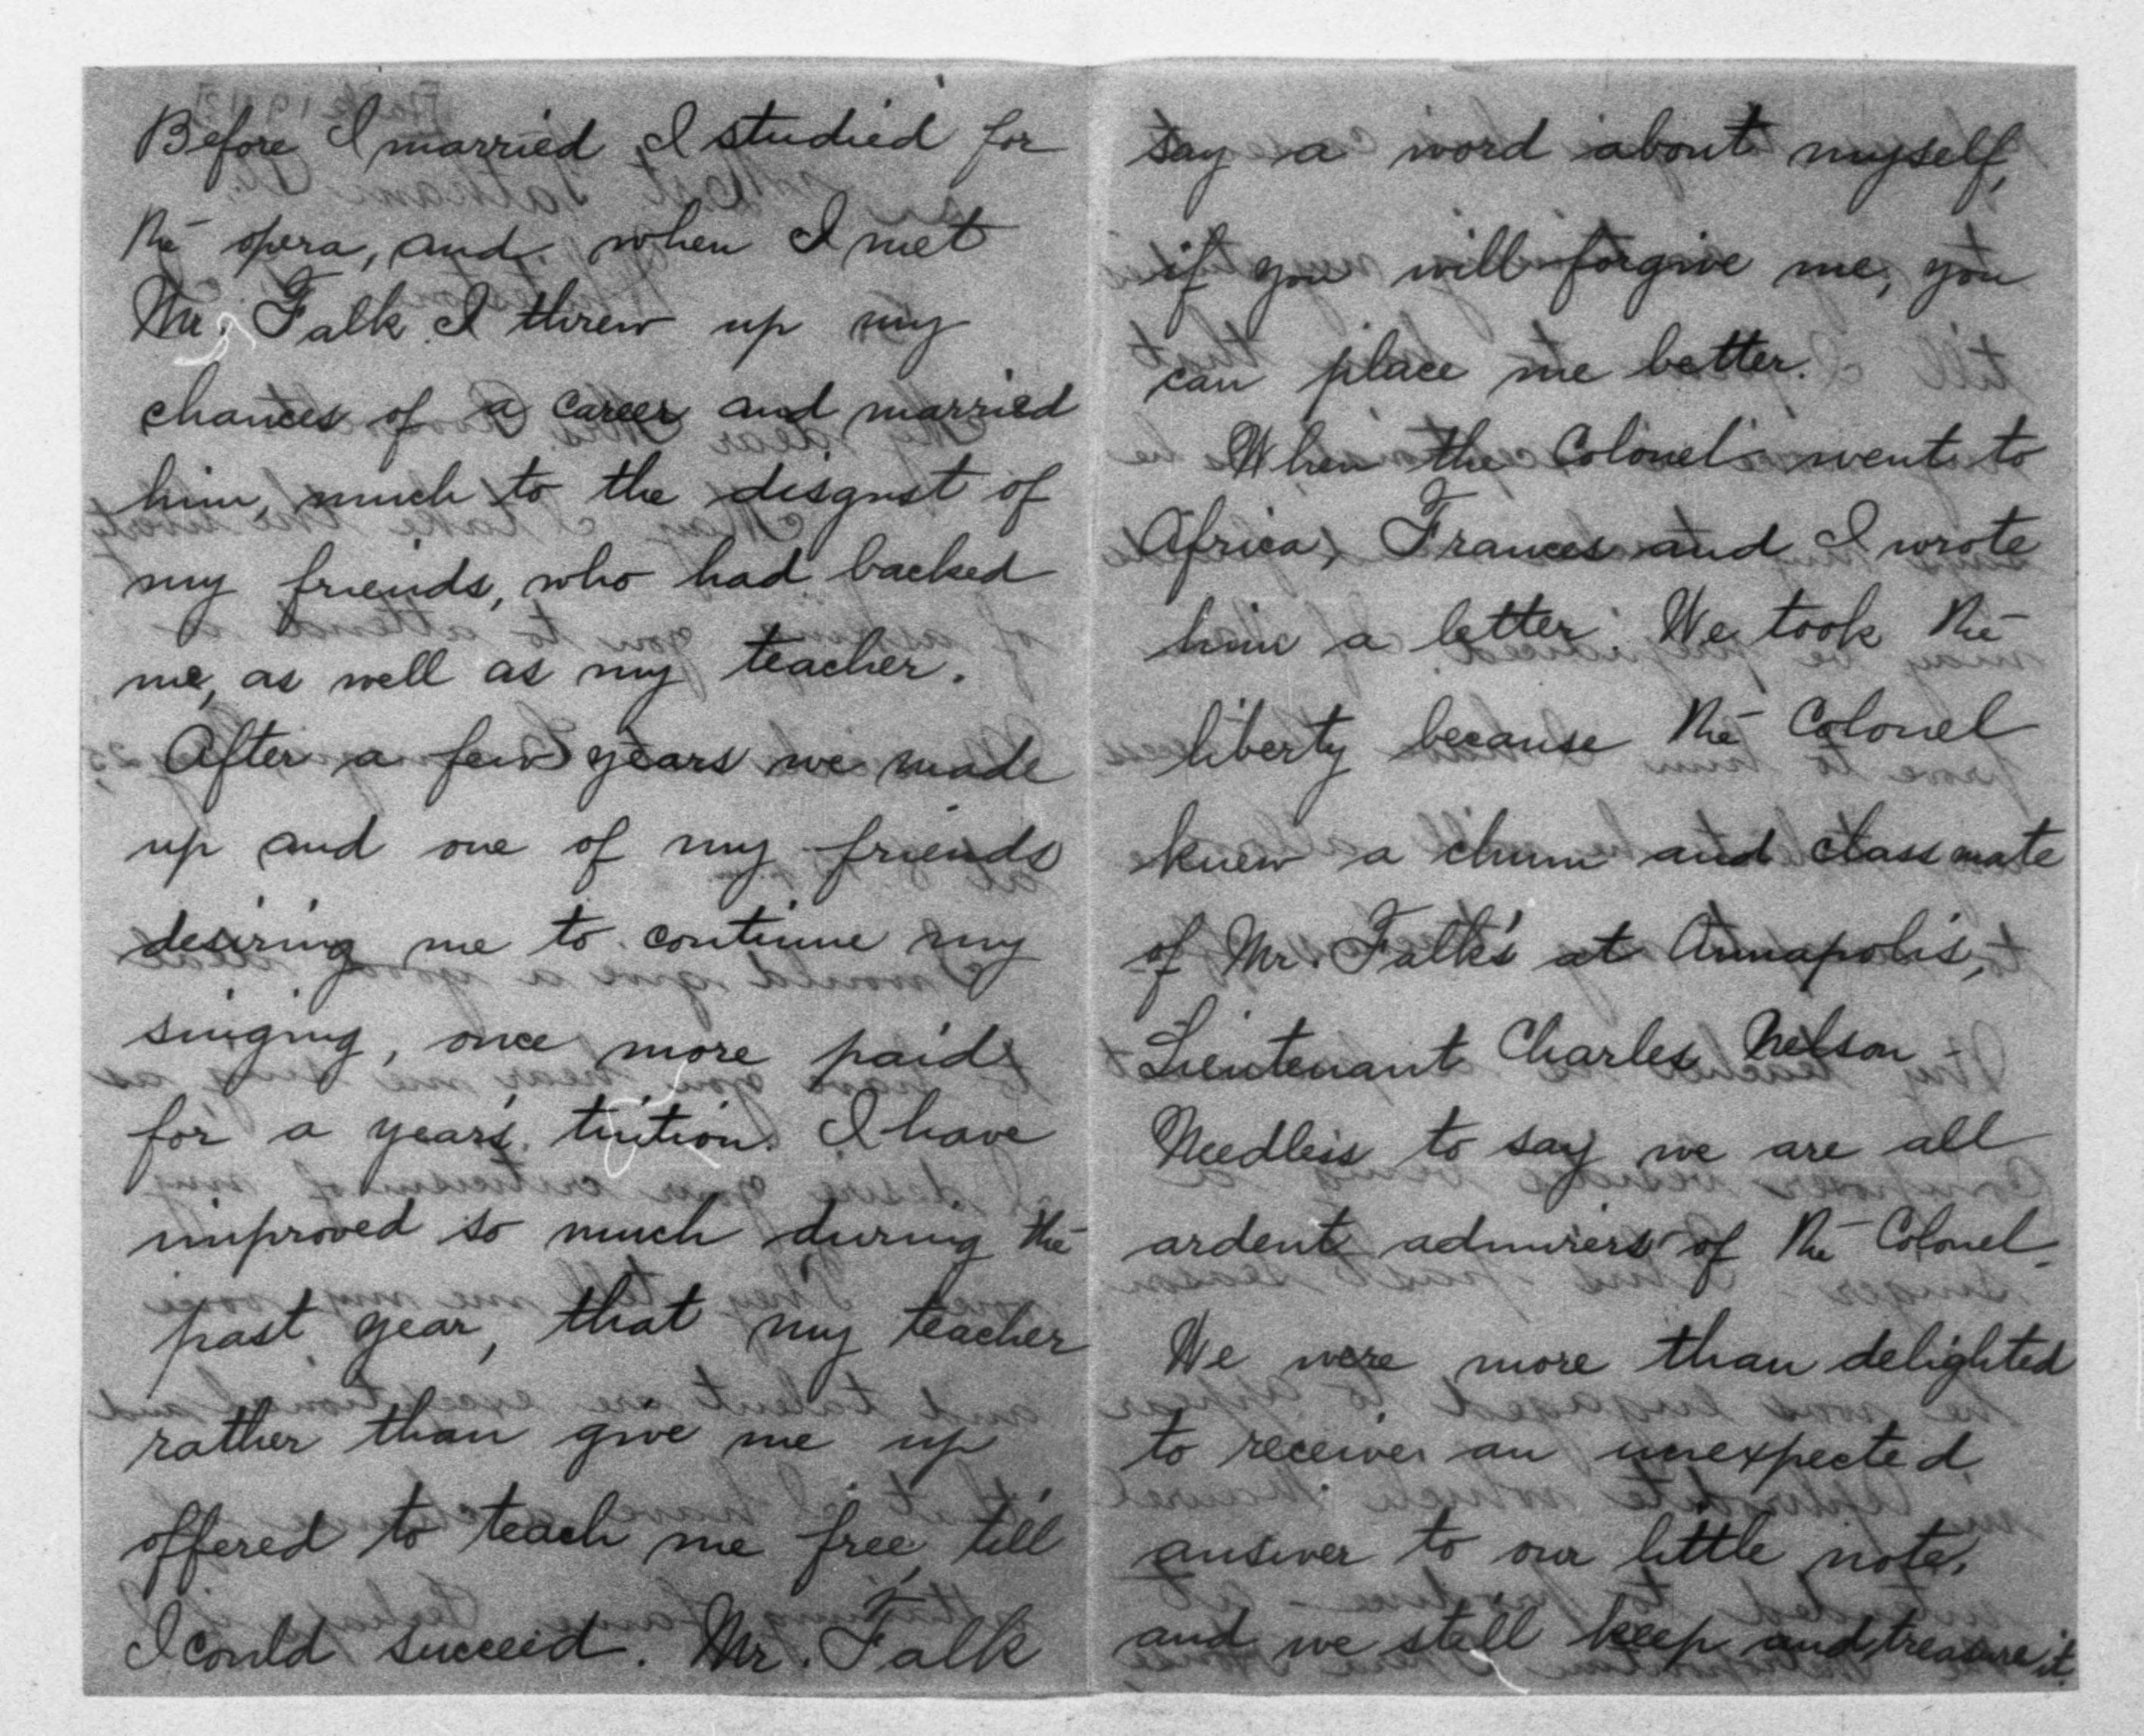 Before I married, I studied for
the opera, and when I met
Mr. Falk I threw up my
chances of a career and married
him, much to the disgust of
my friends, who had backed
me, as well as my teacher.
After a few years we made
up and one of my friends
desiring me to continue my
singing, once more paid
for a year's tuition. I have
improved so much during the
past year, that my teacher
rather than give me up
offered to teach me free, till
I could succeed. Mr. Falk
say a word about myself,
if you will forgive me, you
can place me better.
When the Colonel went to
Africa, Frances and I wrote
him a letter. We took the
liberty because the Colonel
knew a chum and classmate
of Mr. Falk's at Annapolis,
Lieutenant Charles Nelson -
Needless to say we are all
ardent admirers of the Colonel.
We were more than delighted
to receive an unexpected
answer to our little note,
and we still keep and treasure it.